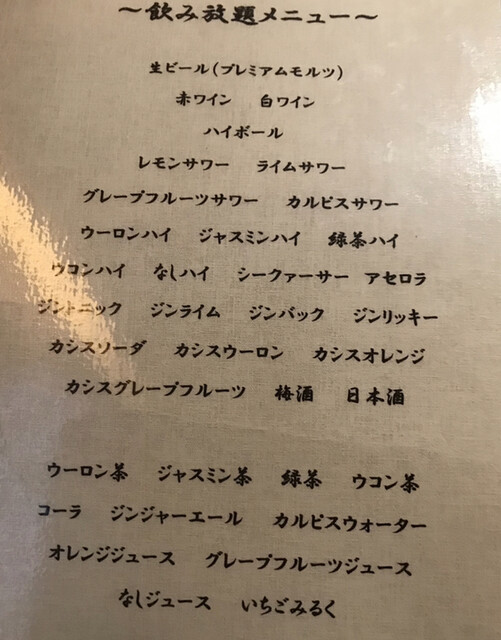 ～飲み放題メニュー～
生ビール(プレミアムモルツ)
赤ワイン 白ワイン
ハイボール
レモンサワー ライムサワー
グレープフルーツサワー カルピスサワー
ウーロンハイ ジャスミンハイ 緑茶ハイ
ウコンハイ なしハイ シークァーサー アセロラ
ジントニック ジンライム ジンバック ジンリッキー
カシスソーダ カシスウーロン カシスオレンジ
カシスグレープフルーツ 梅酒 日本酒
ウーロン茶 ジャスミン茶 緑茶 ウコン茶
コーラ ジンジャーエール カルピスウォーター
オレンジジュース グレープフルーツジュース
なしジュース いちごみるく